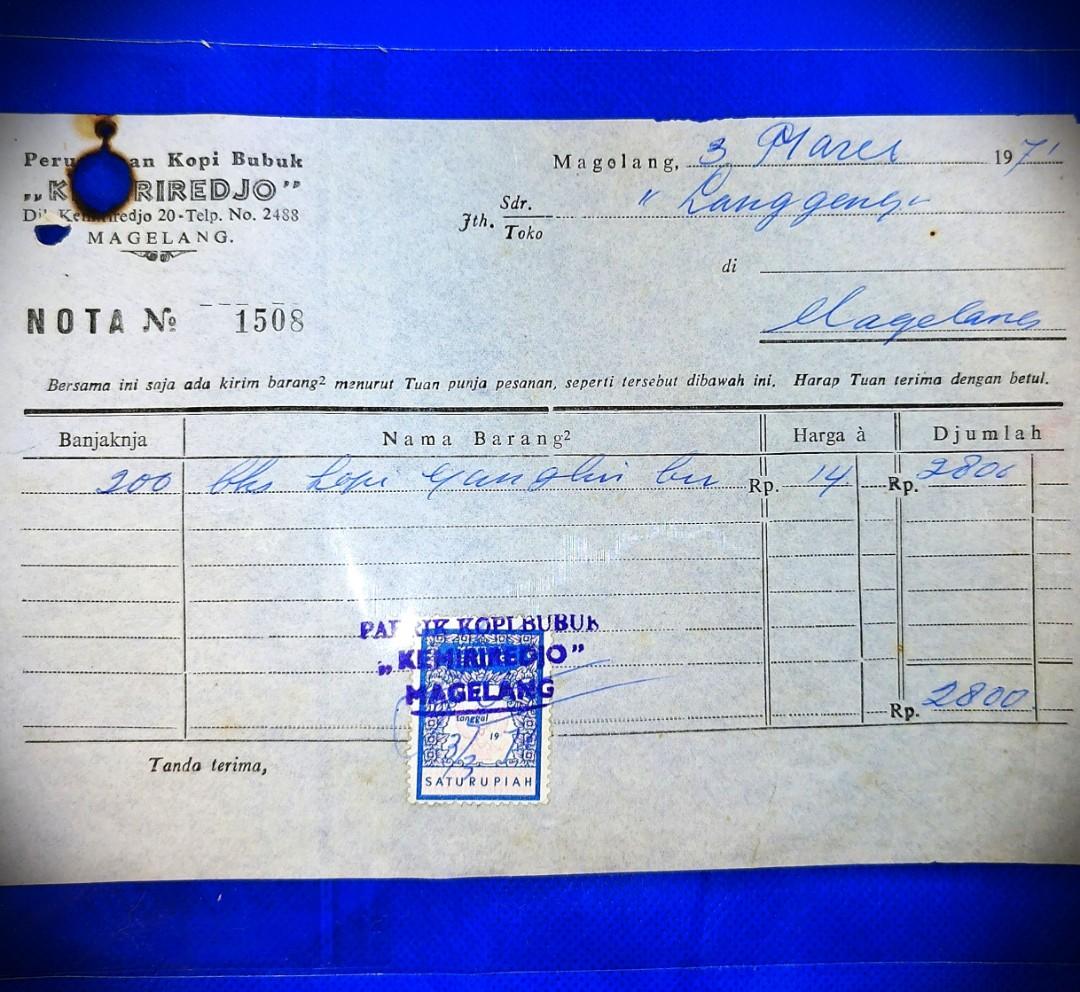 Peru an Kopi Bubuk
„K RIREDJO”
Dj Kemiriredjo 20-Telp. No. 2488
MAGELANG.
Magelang, 3 Maret 1971
Jth. Sdr. Toko "Langgeng"
di
Magelang
NOTA № 1508
Bersama ini saja ada kirim barang² menurut Tuan punja pesanan, seperti tersebut dibawah ini. Harap Tuan terima dengan betul.
Banjaknja Nama Barang² Harga à Djumlah
200 bks kopi Rp. 14 Rp. 2800
PABRIK KOPI BUBUK
„KEMIRIREDJO”
MAGELANG
Rp. 2800
tanggal
3/3 197
SATU RUPIAH
Tanda terima,